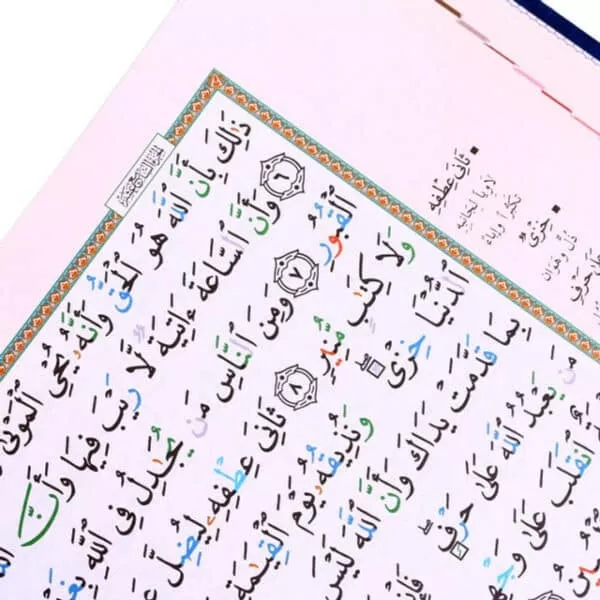 ذَٰلِكَ بِأَنَّ ٱللَّهَ هُوَ ٱلْحَقُّ وَأَنَّهُۥ يُحْىِ ٱلْمَوْتَىٰ
٦ وَأَنَّ ٱلسَّاعَةَ ءَاتِيَةٌ لَّا رَيْبَ فِيهَا وَأَنَّ
ٱلْقُبُورِ ٧ وَمِنَ ٱلنَّاسِ مَن يُجَٰدِلُ فِى ٱللَّهِ بِغَيْرِ
وَلَا كِتَٰبٍ مُّنِيرٍ ٨ ثَانِىَ عِطْفِهِۦ لِيُضِلَّ
ٱلدُّنْيَا خِزْىٌ وَنُذِيقُهُۥ يَوْمَ ٱلْقِيَٰمَةِ
بِمَا قَدَّمَتْ يَدَاكَ وَأَنَّ ٱللَّهَ لَيْسَ
مَن يَعْبُدُ ٱللَّهَ عَلَىٰ حَرْفٍ فَإِنْ
ٱنقَلَبَ عَلَىٰ وَجْهِهِۦ
ثَانِيَ عِطْفِهِ
لاوياً لجانبه
تكبراً وإباء
خِزْيٌ
ذل وهوان
عَلَى حَرْفٍ